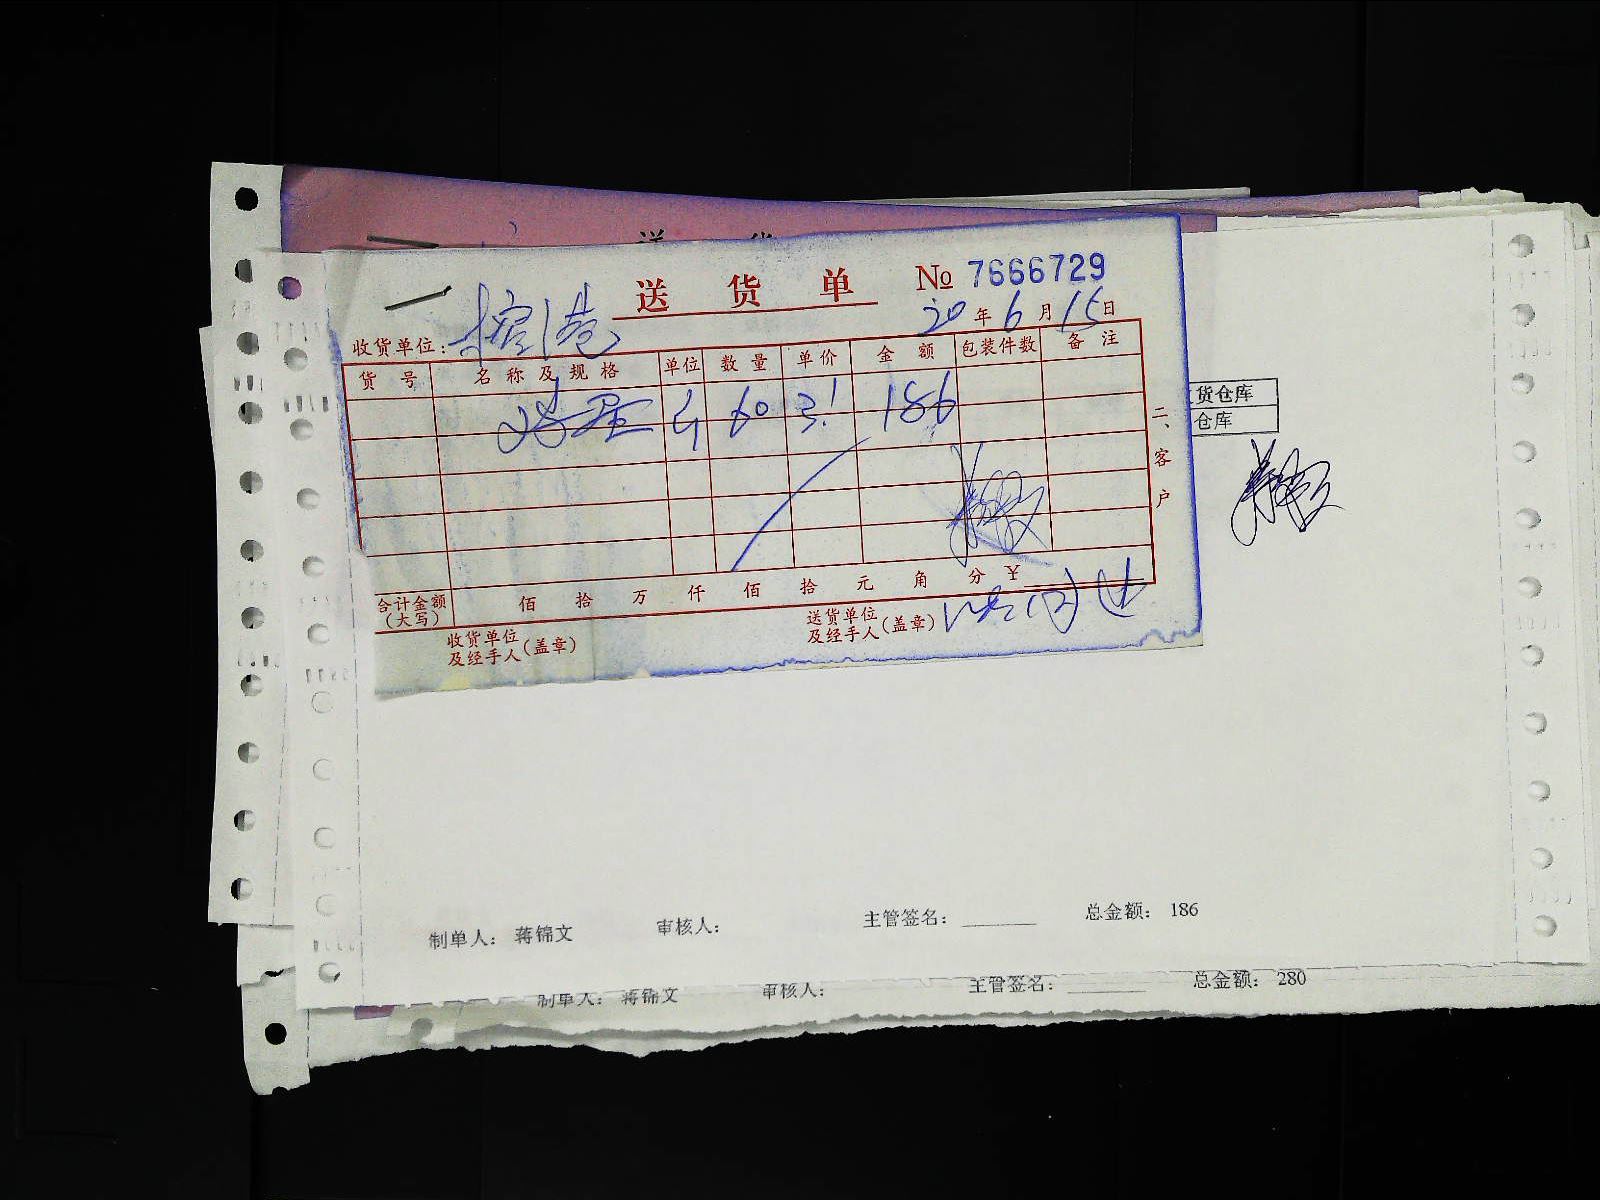 送 货
送 货 单 № 7666729
20 年 6 月 15 日
收货单位:
货 号 名 称 及 规 格 单位 数 量 单价 金 额 包装件数 备 注
斤 60 3.1 186
二、客户
合计金额(大写) 佰 拾 万 仟 佰 拾 元 角 分 ¥
收货单位及经手人(盖章)
送货单位及经手人(盖章)
货仓库
仓库
制单人: 蒋锦文 审核人: 主管签名: 总金额: 186
制单人: 蒋锦文 审核人: 主管签名: 总金额: 280